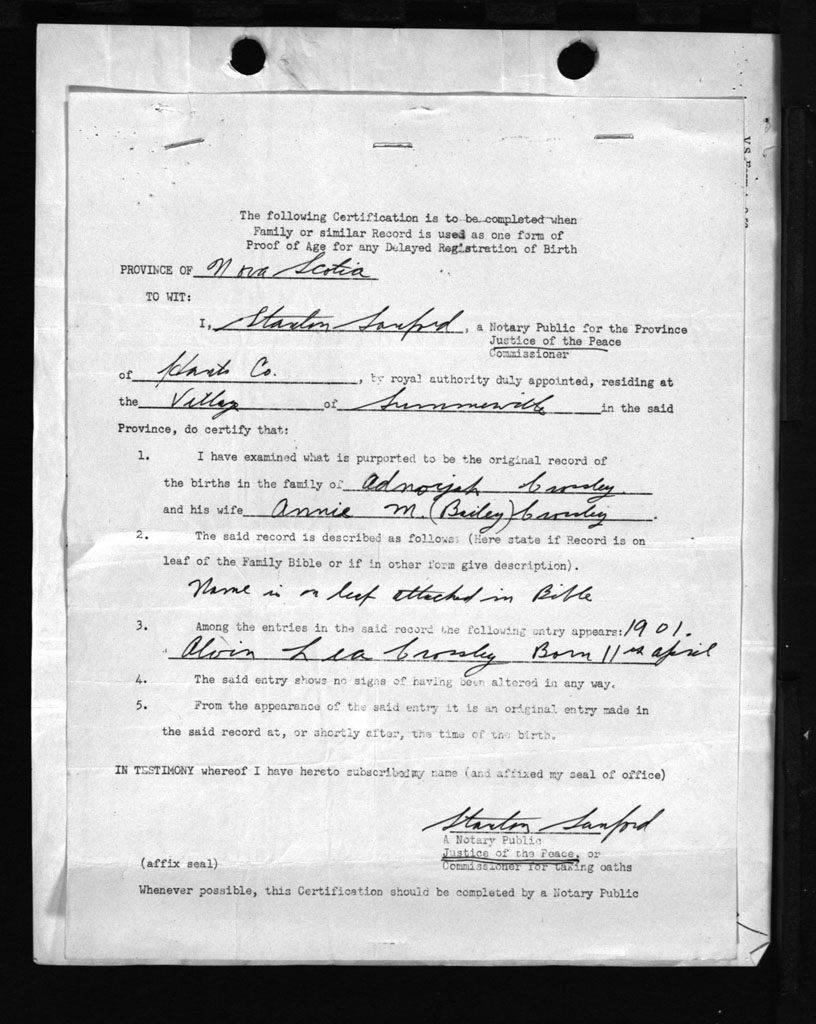 The following Certification is to be completed when
Family or similar Record is used as one form of
Proof of Age for any Delayed Registration of Birth
PROVINCE OF Nova Scotia
TO WIT:
I, Stanton Sanford, a Notary Public for the Province
Justice of the Peace
Commissioner
of Hants Co., by royal authority duly appointed, residing at
the Village of Summerville in the said
Province, do certify that:
1. I have examined what is purported to be the original record of
the births in the family of Adnorijah Crossley
and his wife Annie M. (Bailey) Crossley.
2. The said record is described as follows: (Here state if Record is on
leaf of the Family Bible or if in other form give description).
Name is on leaf attached in Bible
3. Among the entries in the said record the following entry appears: 1901.
Alvin Lea Crossley Born 11th April
4. The said entry shows no signs of having been altered in any way.
5. From the appearance of the said entry it is an original entry made in
the said record at, or shortly after, the time of the birth.
IN TESTIMONY whereof I have hereto subscribed my name (and affixed my seal of office)
Stanton Sanford
A Notary Public
Justice of the Peace, or
(affix seal) Commissioner for taking oaths
Whenever possible, this Certification should be completed by a Notary Public